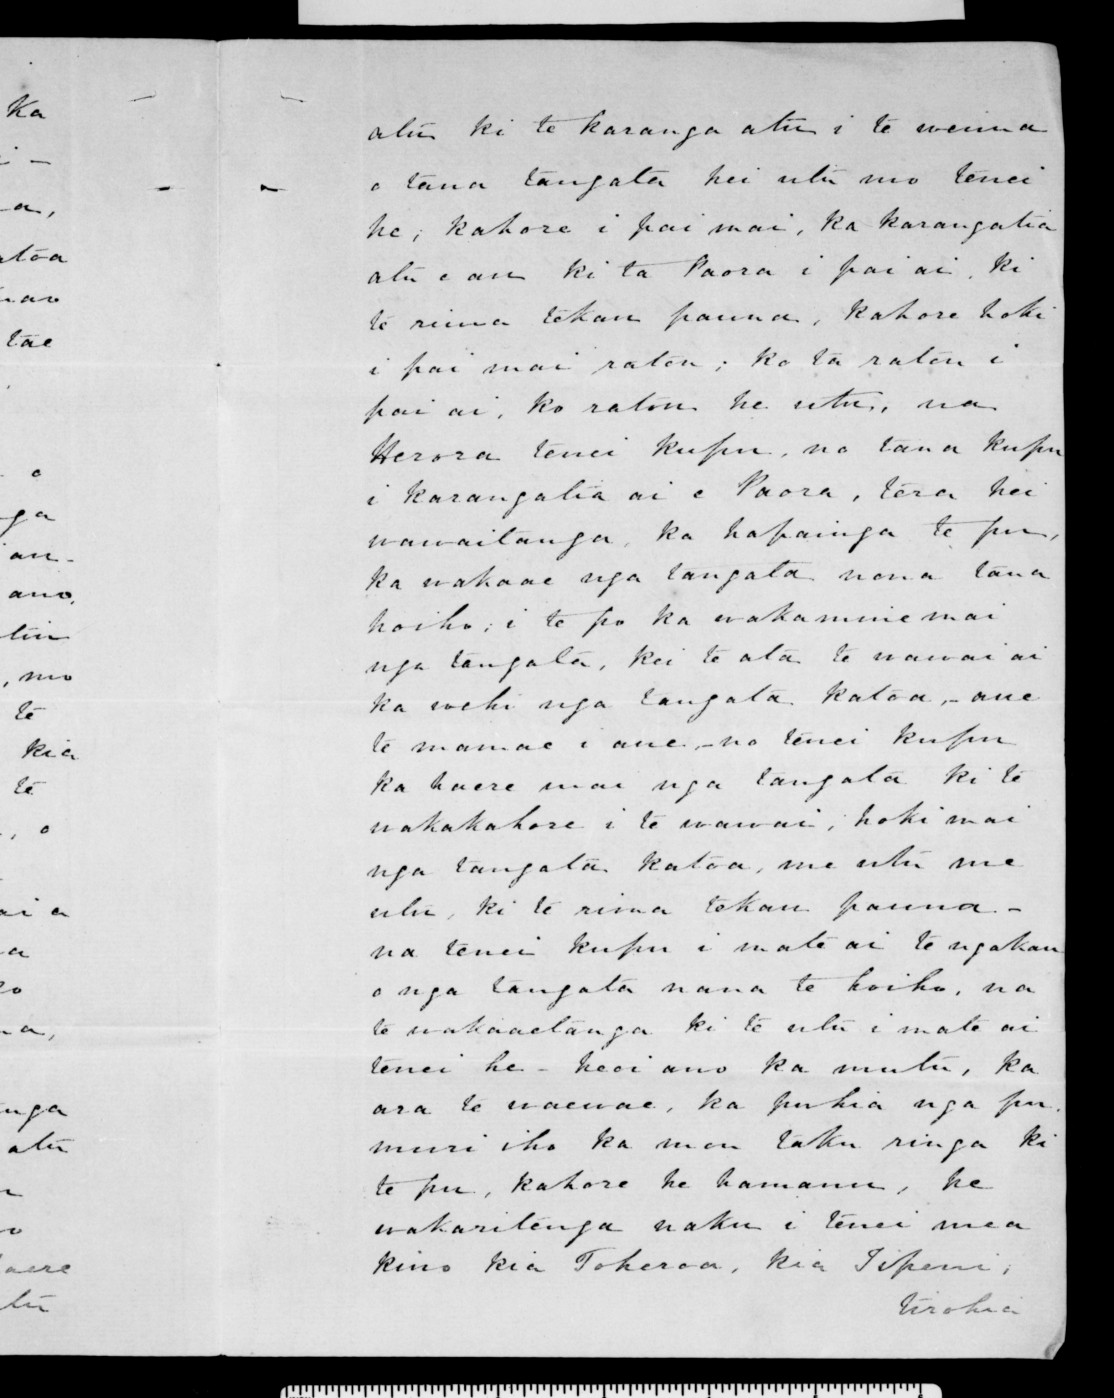 Ka
a,
atoa
tae
o
nga
ano,
, mo
te
kia
te
, o
ai a
nga
atu
haere
atu ki te karanga atu i te wenua
o tana tangata hei utu mo tenei
he; kahore i pai mai, ka karangatia
atu e au ki ta Paora i pai ai, ki
te rima tekau pauna, kahore hoki
i pai mai ratou; ko ta ratou i
pai ai, ko ratou he utu, na
Herora tenei kupu, no tana kupu
i karangatia ai e Paora, tera hei
wawaitanga, ka hapainga te pu,
ka wakaae nga tangata nona tana
hoiho; i te po ka wakaminemai
nga tangata, kei te ata te wawai ai
ka wehi nga tangata katoa, - aue
te mamae i aue, - no tenei kupu
ka haere mai nga tangata ki te
wakakahore i te wawai; hoki mai
nga tangata katoa, me utu me
utu, ki te rima tekau pauna -
na tenei kupu i mate ai te ngakau
o nga tangata nana te hoiho, na
te wakaaetanga ki te utu i mate ai
tenei he - heoi ano ka mutu, ka
ara te waewae, ka puhia nga pu.
muri iho ka mou taku ringa ki
te pu, kahore he hamanu, he
wakaritenga naku i tenei mea
kino kia Toheroa, kia Tipene;
tirohia